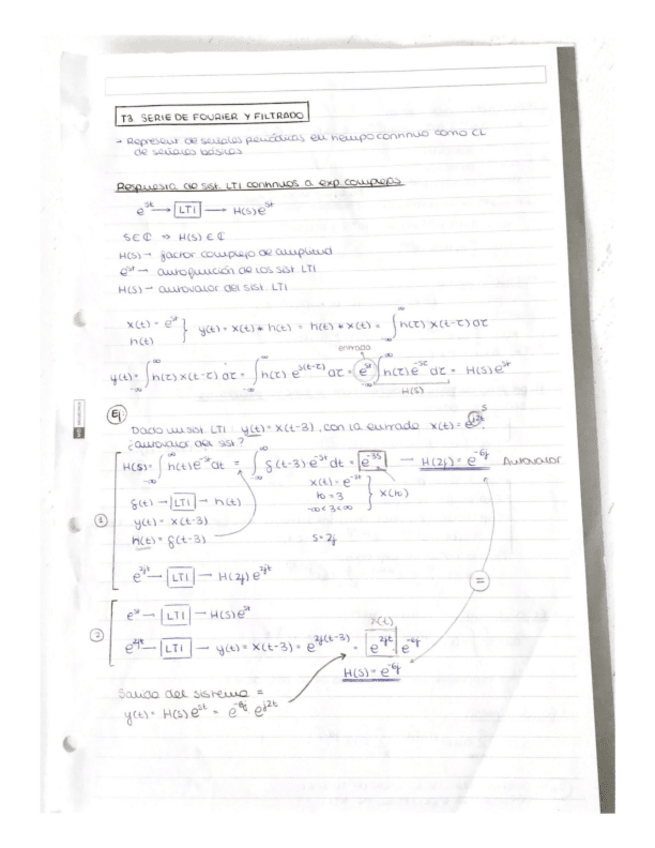 T3. SERIE DE FOURIER Y FILTRADO
→ Represent. de señales periódicas en tiempo continuo como CL
de señales básicas
Respuesta de sist. LTI continuos a exp. complejas
e^{st} → [LTI] → H(s)e^{st}
s∈ℂ ⇒ H(s)∈ℂ
H(s) → factor complejo de amplitud
e^{st} → autofunción de los sist. LTI
H(s) → autovalor del sist. LTI
x(t) = e^{st}
h(t) } y(t) = x(t) * h(t) = h(t) * x(t) = ∫_{-∞}^{∞} h(τ) x(t-τ) dτ
entrada
y(t) = ∫_{-∞}^{∞} h(τ) x(t-τ) dτ = ∫_{-∞}^{∞} h(τ) e^{s(t-τ)} dτ = e^{st} ∫_{-∞}^{∞} h(τ) e^{-sτ} dτ = H(s)e^{st}
H(s)
Ej
Dado un sist. LTI y(t) = x(t-3), con la entrada x(t) = e^{j2t}. s
¿autovalor del sist?
① H(s) = ∫_{-∞}^{∞} h(t) e^{-st} dt = ∫_{-∞}^{∞} δ(t-3) · e^{-st} dt = e^{-3s} → H(2j) = e^{-6j} Autovalor
x(t) = e^{-st}
t0 = 3
-∞ < 3 < ∞ } x(t0)
δ(t) → [LTI] → h(t)
y(t) = x(t-3)
h(t) = δ(t-3)
s = 2j
e^{2jt} → [LTI] → H(2j) e^{2jt}
=
② e^{st} → [LTI] → H(s)e^{st}
x(t)
e^{2jt} → [LTI] → y(t) = x(t-3) = e^{2j(t-3)} = e^{2jt} · e^{-6j}
H(s) = e^{-6j}
Salida del sistema =
y(t) = H(s) e^{st} = e^{-6j} e^{j2t}